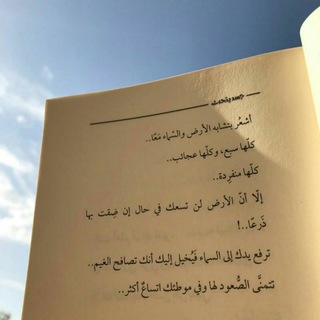 أشعُر بتشابه الأرض والسَّماء مَعًا..
كلّها سبع، وكلّها عجائب..
كلّها منفرِدة..
إلّا أنّ الأرض لن تسعك في حال إن ضِقت بها
ذَرعًا..!
ترفع يدك إلى السماء فَيُخيل إليك أنك تصافح الغيم..
تتمنَّى الصُّعود لها وفي موطنك اتساعٌ أكثر..